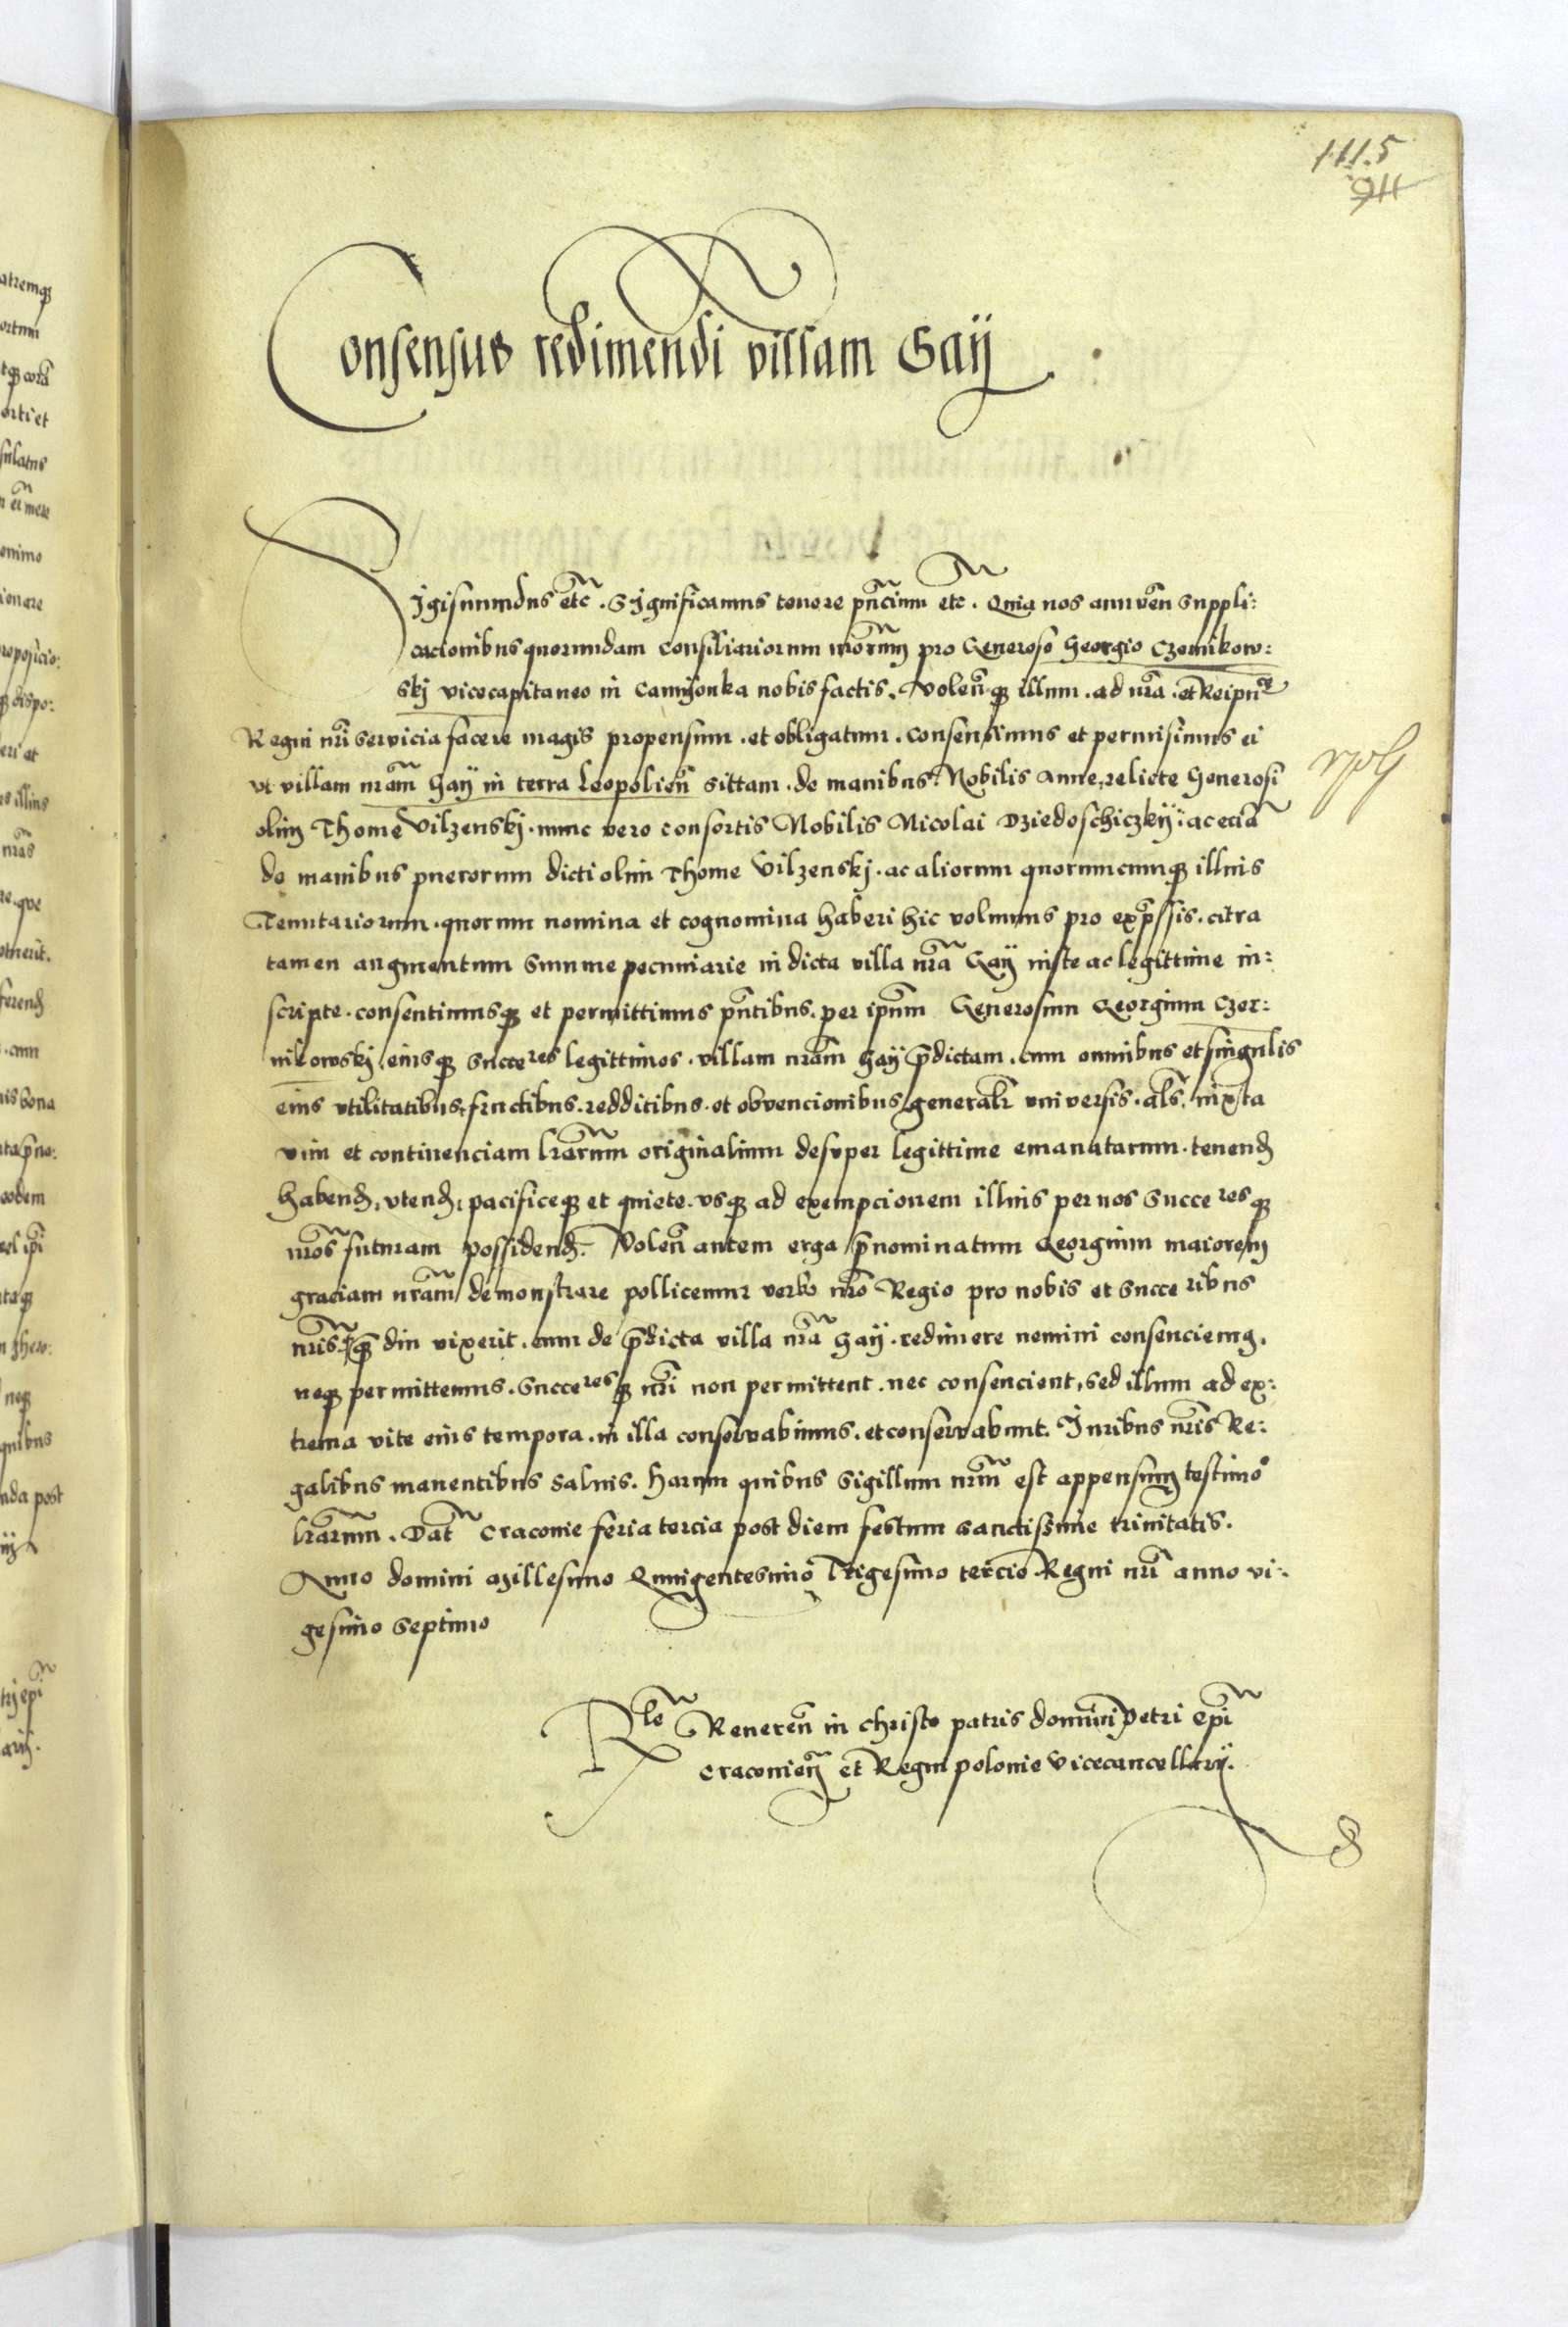 1115
911
Consensus redimendi villam Gaÿ
Sigismundus etc̃. Significamus tenore pñcium etc. Quia nos annuẽn suppli:
cacionibus quorundam consiliariorum nr̃orum pro Generoso Georgio Czernikow:
skj vicecapitaneo in Camyonka nobis factis. Volenq̃ illum. ad nr̃a. et Reipu
Regni nr̃i servicia facere magis propensum. et obligatum. consensimus et permisimus ei
vt villam nr̃am Gaÿ in terra Leopolieñ sittam. de manibus Nobilis Anne, relicte Generosi
olim Thome Vilzenskj. nunc vero consortis Nobilis Nicolai Dziedoschiczkÿ: ac eciã
de manibus puerorum dicti olim Thome Vilzenskj. ac aliorum quorumcumq̃ illius
Tenutariorum. quorum nomina et cognomina haberi hic volumus pro exp̃ssis. citra
tamen augmentum summe pecuniarie in dicta villa nr̃a Gaÿ iuste ac legittime in:
scripte. consentimusq̃ et permittimus pñtibus. per ipũm Generosum Georgium Czer:
nikowskj eiusq̃ succe^res legittimos. villam nr̃am Gaÿ p̃dictam. cum omnibus et singulis
eius vtilitatibus, fructibus. redditibus. et obvencionibus generalr̃ vniversis. als̃. iuxta
vim et continenciam lr̃arum originalium desuper legittime emanatarum. tenend̃
habend̃, vtend̃, pacificeq̃ et quiete. vsq̃ ad exempcionem illius per nos succe^resq̃
nr̃os futuram possidend̃. Voleñ autem erga p̃nominatum Georgium maiorem
graciam nr̃am demonstrare pollicemur verbo nr̃o Regio pro nobis et succe^ribus
nr̃is. q̃ diu vixerit. eum de p̃dicta villa nr̃a Gaÿ. redimere nemini consenciemq.
neq̃ permittemus. succe^resq̃ nr̃i non permittent. nec consencient, sed illum ad ex:
trema vite eius tempora. in illa conservabimus. et conservabunt. Iuribus nr̃is Re:
galibus manentibus salvis. Harum quibus sigillum nr̃um est appensum testimo
lr̃arum. Dat̃ Cracovie feria tercia post diem festum sanctissime trinitatis.
Anno domini Millesimo Quingentesimo Trigesimo tercio Regni nr̃i anno vi:
gesimo septimo
R^le Reveren̄ in christo patris domini Petri Ep̃i
Cracovień et Regni polonie vicecancellarÿ.